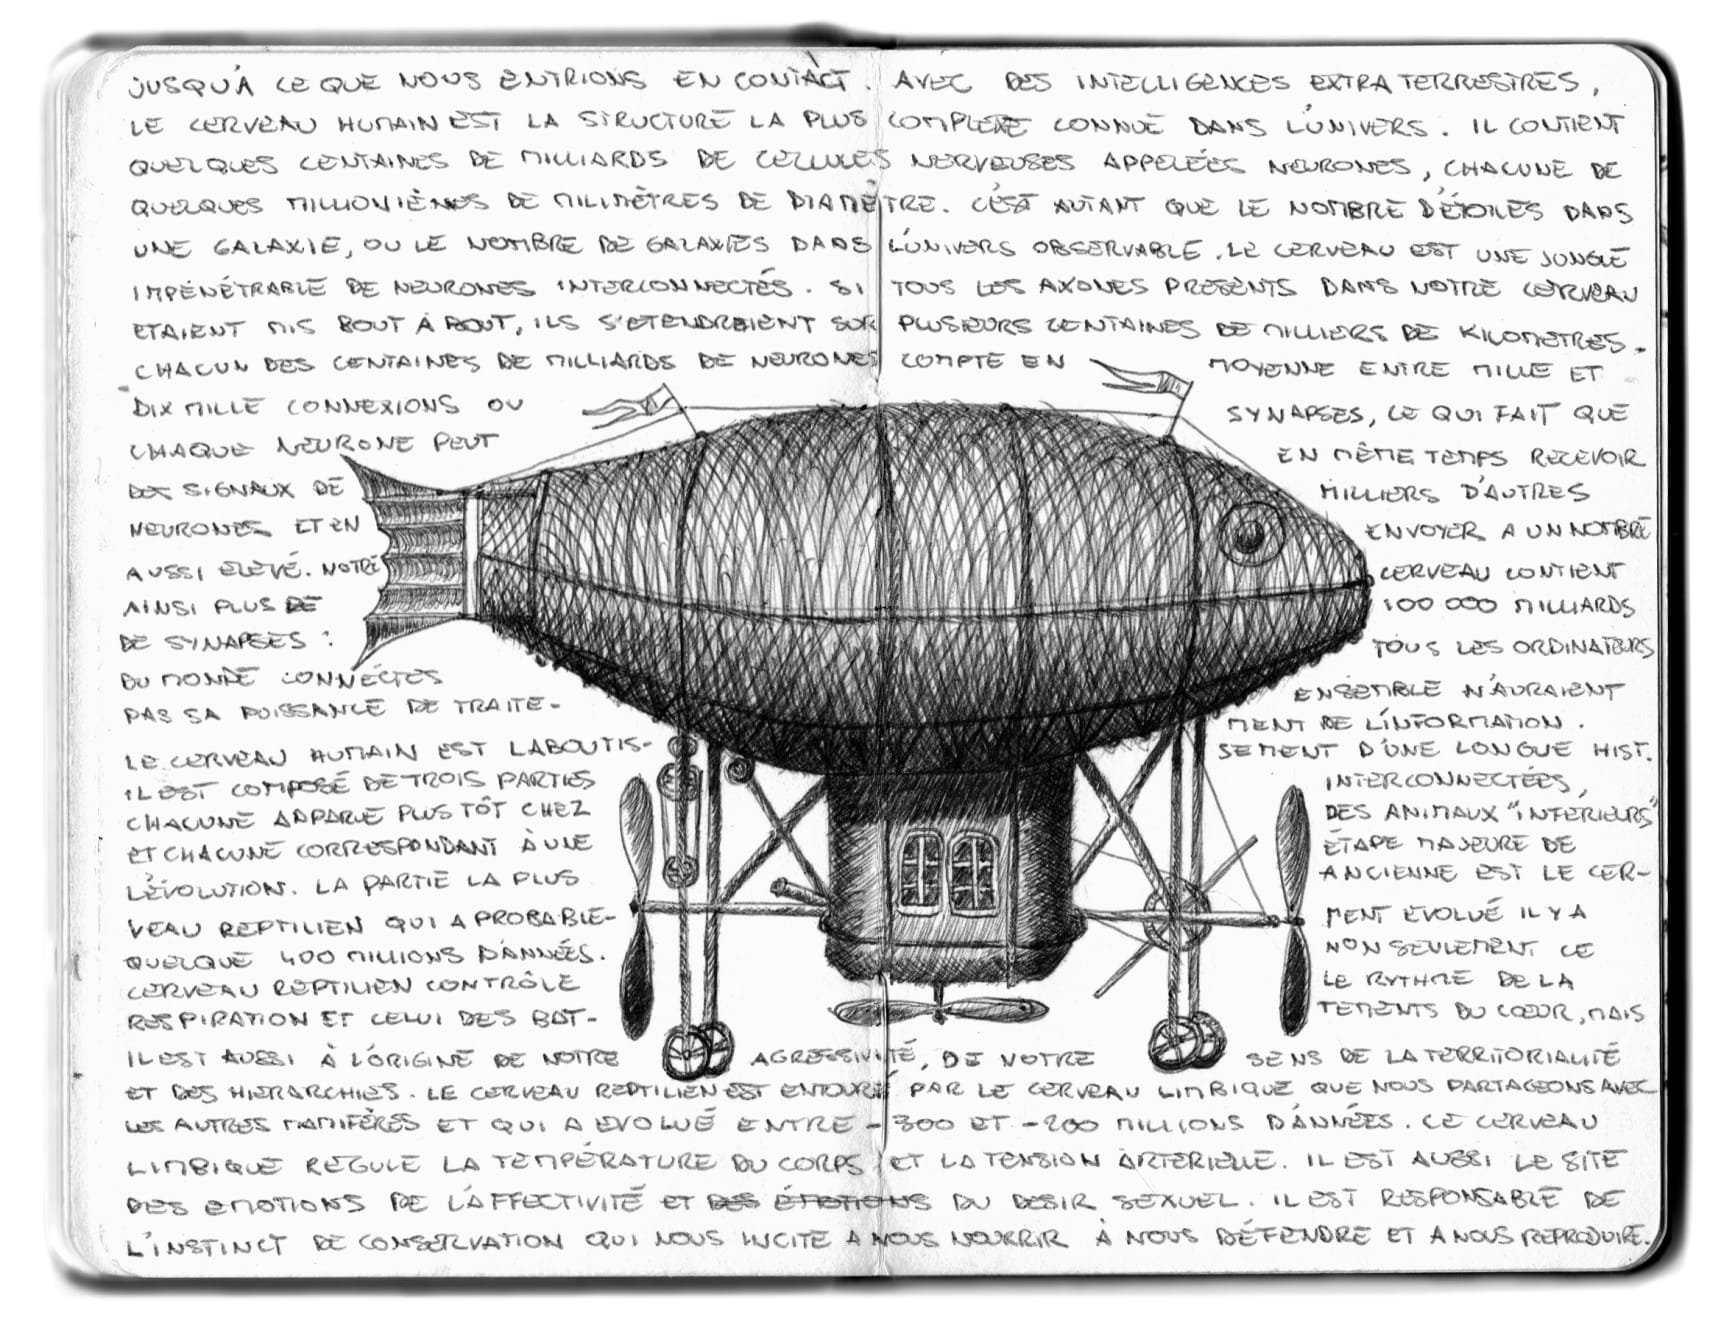 JUSQU'À CE QUE NOUS ENTRIONS EN CONTACT AVEC DES INTELLIGENCES EXTRA TERRESTRES,
LE CERVEAU HUMAIN EST LA STRUCTURE LA PLUS COMPLEXE CONNUE DANS L'UNIVERS. IL CONTIENT
QUELQUES CENTAINES DE MILLIARDS DE CELLULES NERVEUSES APPELÉES NEURONES, CHACUNE DE
QUELQUES MILLIONIÈMES DE MILIMÈTRES DE DIAMÈTRE. C'EST AUTANT QUE LE NOMBRE D'ÉTOILES DANS
UNE GALAXIE, OU LE NOMBRE DE GALAXIES DANS L'UNIVERS OBSERVABLE. LE CERVEAU EST UNE JUNGLE
IMPÉNÉTRABLE DE NEURONES INTERCONNECTÉS. SI TOUS LES AXONES PRESENTS DANS NOTRE CERVEAU
ETAIENT MIS BOUT À BOUT, ILS S'ETENDRAIENT SUR PLUSIEURS CENTAINES DE MILLIERS DE KILOMETRES.
CHACUN DES CENTAINES DE MILLIARDS DE NEURONES COMPTE EN MOYENNE ENTRE MILLE ET
DIX MILLE CONNEXIONS OU SYNAPSES, CE QUI FAIT QUE
CHAQUE NEURONE PEUT EN MÊME TEMPS RECEVOIR
DES SIGNAUX DE MILLIERS D'AUTRES
NEURONES ET EN ENVOYER A UN NOMBRE
AUSSI ELEVÉ. NOTRE CERVEAU CONTIENT
AINSI PLUS DE 100 000 MILLIARDS
DE SYNAPSES : TOUS LES ORDINATEURS
DU MONDE CONNÉCTES ENSEMBLE N'AURAIENT
PAS SA PUISSANCE DE TRAITE- MENT DE L'INFORMATION.
LE CERVEAU HUMAIN EST LABOUTIS- SEMENT D'UNE LONGUE HIST.
IL EST COMPOSÉ DE TROIS PARTIES INTERCONNECTÉES,
CHACUNE APPARUE PLUS TÔT CHEZ DES ANIMAUX "INFERIEURS"
ET CHACUNE CORRESPONDANT À UNE ÉTAPE MAJEURE DE
L'ÉVOLUTION. LA PARTIE LA PLUS ANCIENNE EST LE CER-
VEAU REPTILIEN QUI A PROBABLE- MENT EVOLUÉ IL Y A
QUELQUE 400 MILLIONS D'ANNÉES. NON SEULEMENT CE
CERVEAU REPTILIEN CONTRÔLE LE RYTHME DE LA
RESPIRATION ET CELUI DES BAT- TEMENTS DU CŒUR, MAIS
IL EST AUSSI À L'ORIGINE DE NOTRE AGRESSIVITÉ, DE NOTRE SENS DE LA TERRITORIALITÉ
ET DES HIERARCHIES. LE CERVEAU REPTILIEN EST ENTOURÉ PAR LE CERVEAU LIMBIQUE QUE NOUS PARTAGEONS AVEC
LES AUTRES MAMIFÈRES ET QUI A EVOLUÉ ENTRE -300 ET -200 MILLIONS D'ANNÉES. CE CERVEAU
LIMBIQUE REGULE LA TEMPÉRATURE DU CORPS ET LA TENSION ARTERIELLE. IL EST AUSSI LE SITE
DES EMOTIONS DE L'AFFECTIVITÉ ET DES ÉMOTIONS DU DESIR SEXUEL. IL EST RESPONSABLE DE
L'INSTINCT DE CONSERVATION QUI NOUS INCITE A NOUS NOURRIR À NOUS DÉFENDRE ET A NOUS REPRODUIRE.